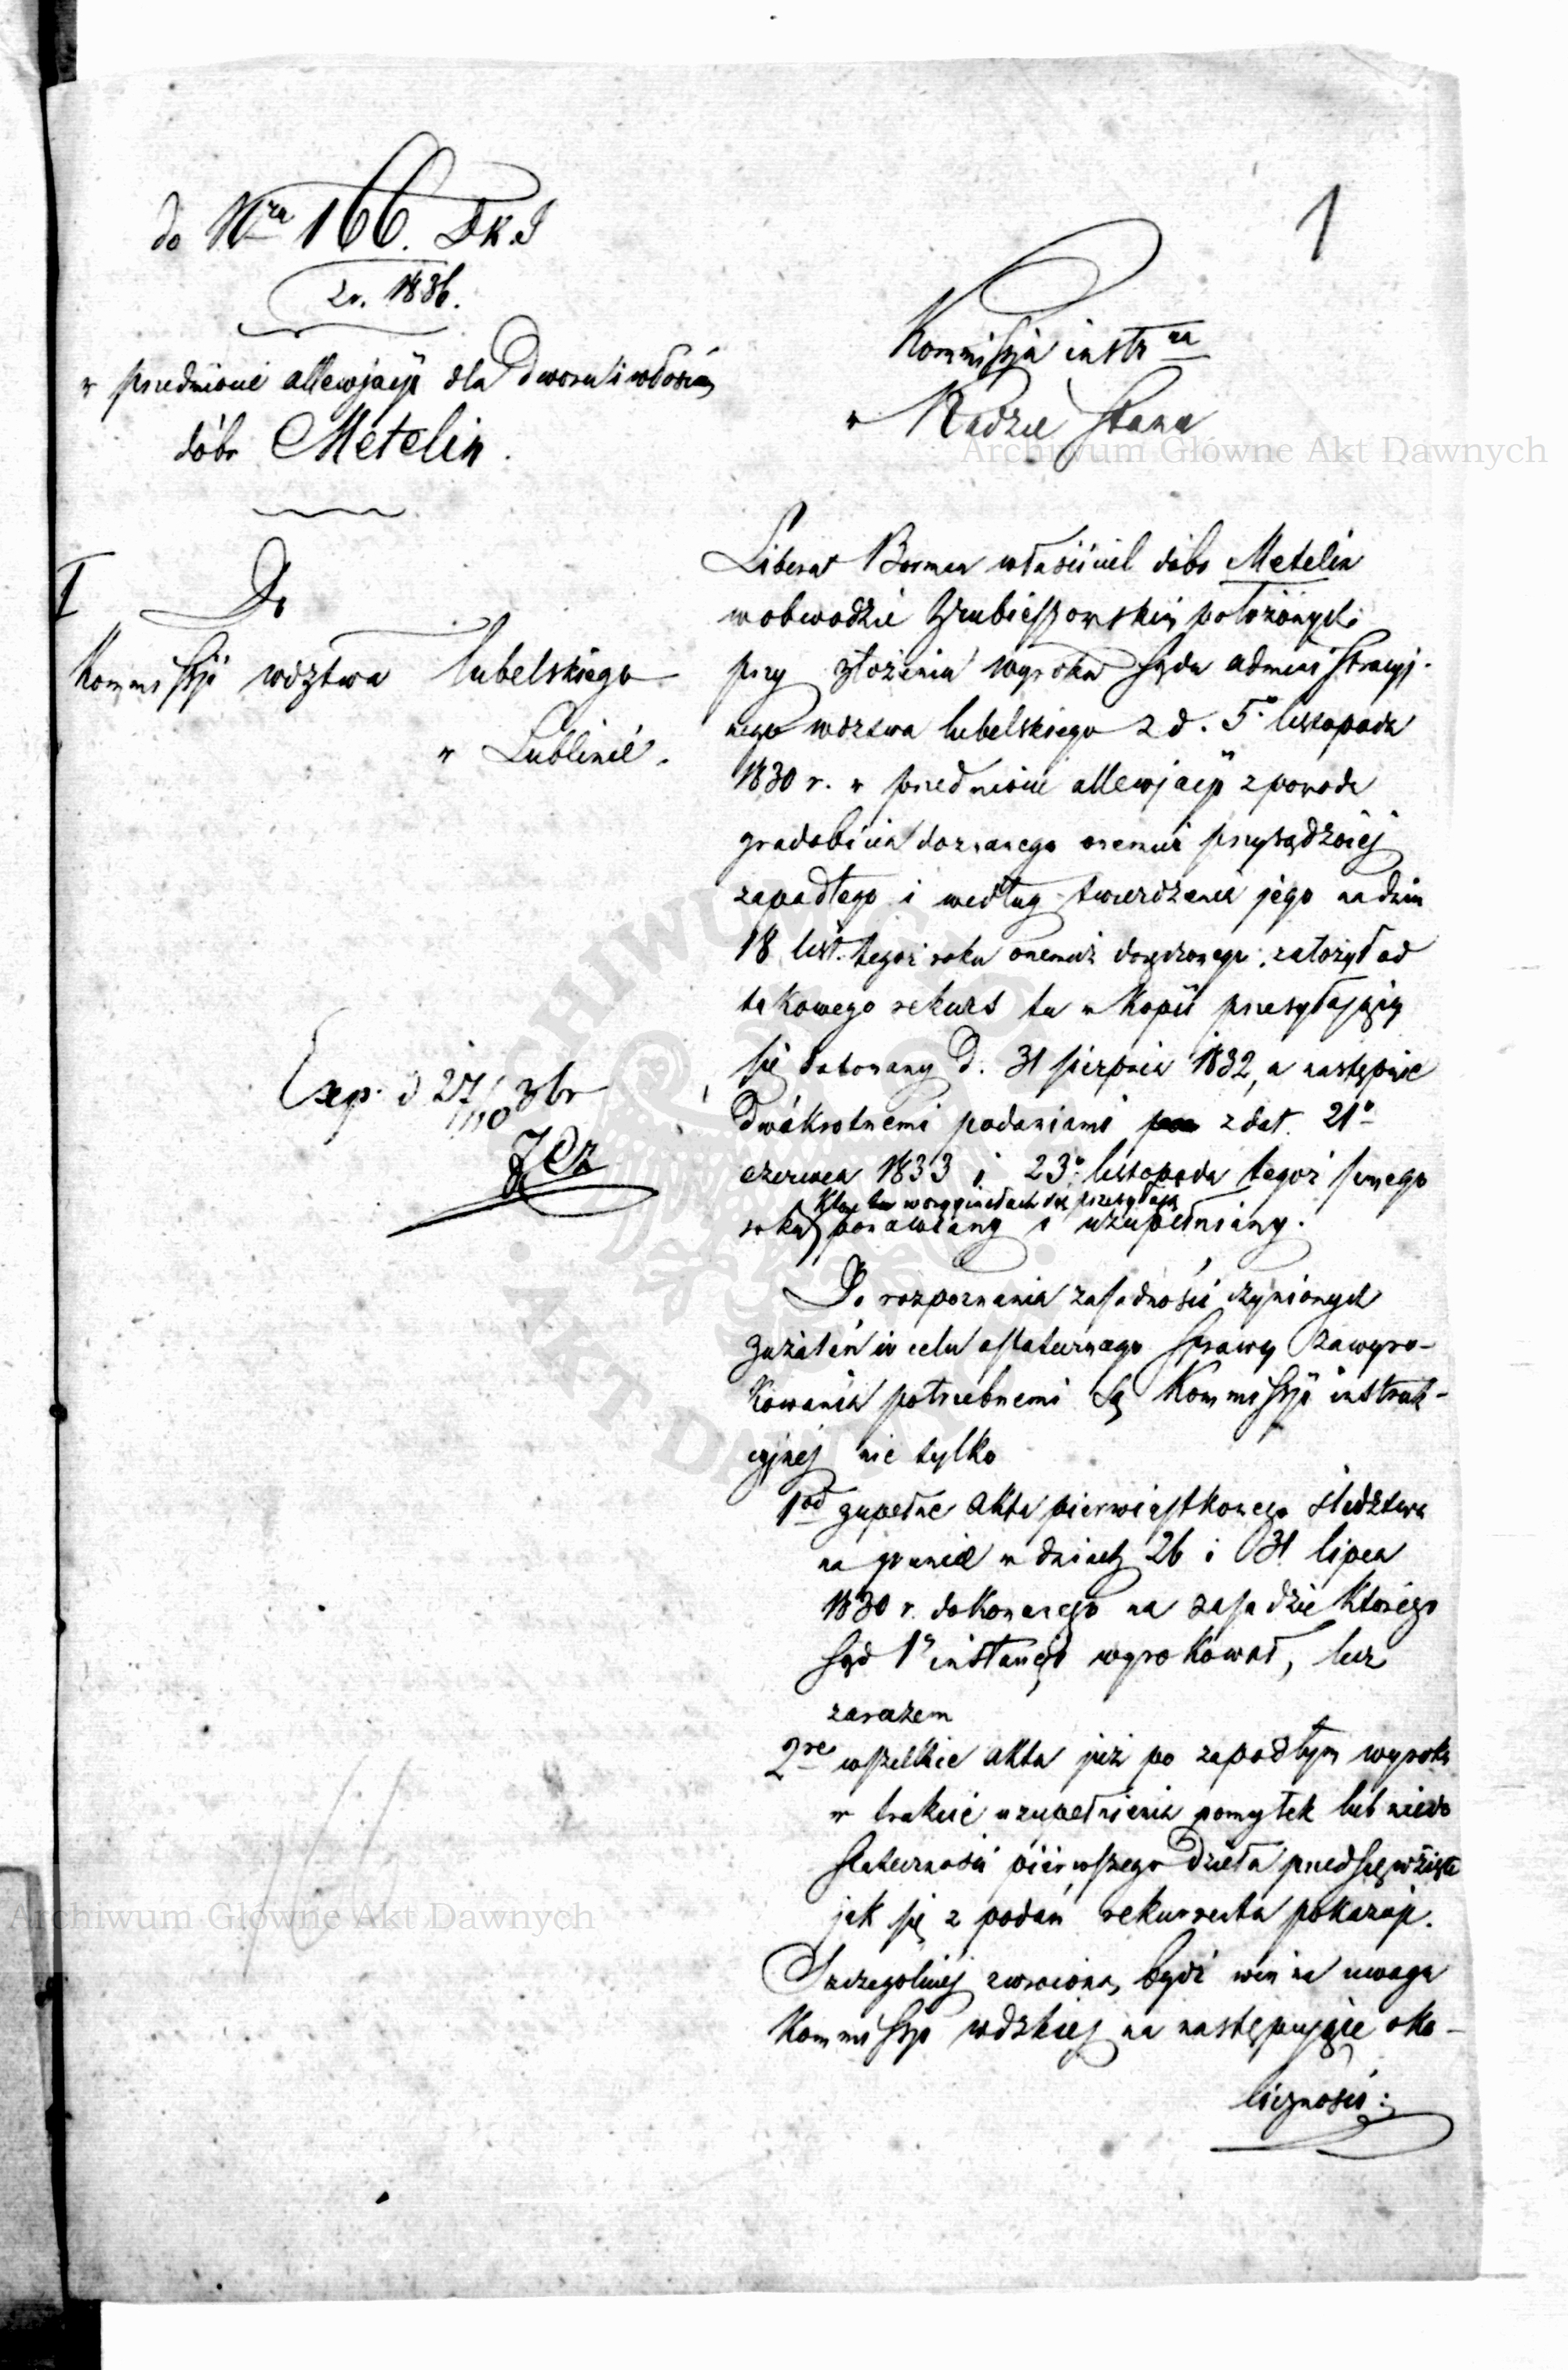 1
do Nra 166. Dk. I
z r. 1836.
w przedmiocie allewjacji dla Dworu i włościan
dóbr Metelin.
I Do
Kommissji wdztwa lubelskiego
w Lublinie.
Exp. d 27/10 3br
Jez
Kommissja instrna
w Radzie Stanu
Liberat Borman właściciel dóbr Metelin
w obwodzie Hrubieszowskim położonych
przy złożeniu wyroku Sądu administracyj-
nego wdztwa lubelskiego z d. 5o listopada
1830 r. w przedmiocie allewjacji z powodu
gradobicia doznanego onemuż przysądzonej
zapadłego i według twierdzenia jego na dniu
18 list. tegoż roku onemuż doręczonego; założył od
takowego rekurs tu w kopii przesyłający
się datowany d. 31 sierpnia 1832, a następnie
dwókrotnemi podaniami z dat. 21o
czerwca 1833 i 23o listopada tegoż samego
które tu w oryginałach się przesyłają
roku ponawiany i uzupełniany.
Do rozpoznania zasadności czynionych
zażaleń i w celu ostatecznego Sprawy zawyro-
kowania potrzebnemi są Kommissji instruk-
cyjnej nie tylko
1od zupełne akta pierwiastkowego śledztwa
na gruncie w dniach 26 i 31 lipca
1830 r. dokonanego na zasadzie którego
Sąd 1r instancji wyrokował, lecz
zarazem
2re wszelkie akta już po zapadłym wyroku
w trakcie uzupełnienia pomyłek lub niedo
stateczności pierwszego dzieła przedsięwzięte
jak się z podań rekurrenta pokazuje.
Szczególniej zwrócona być winna uwaga
Kommissji wdzkiej na następujące oko-
liczności: